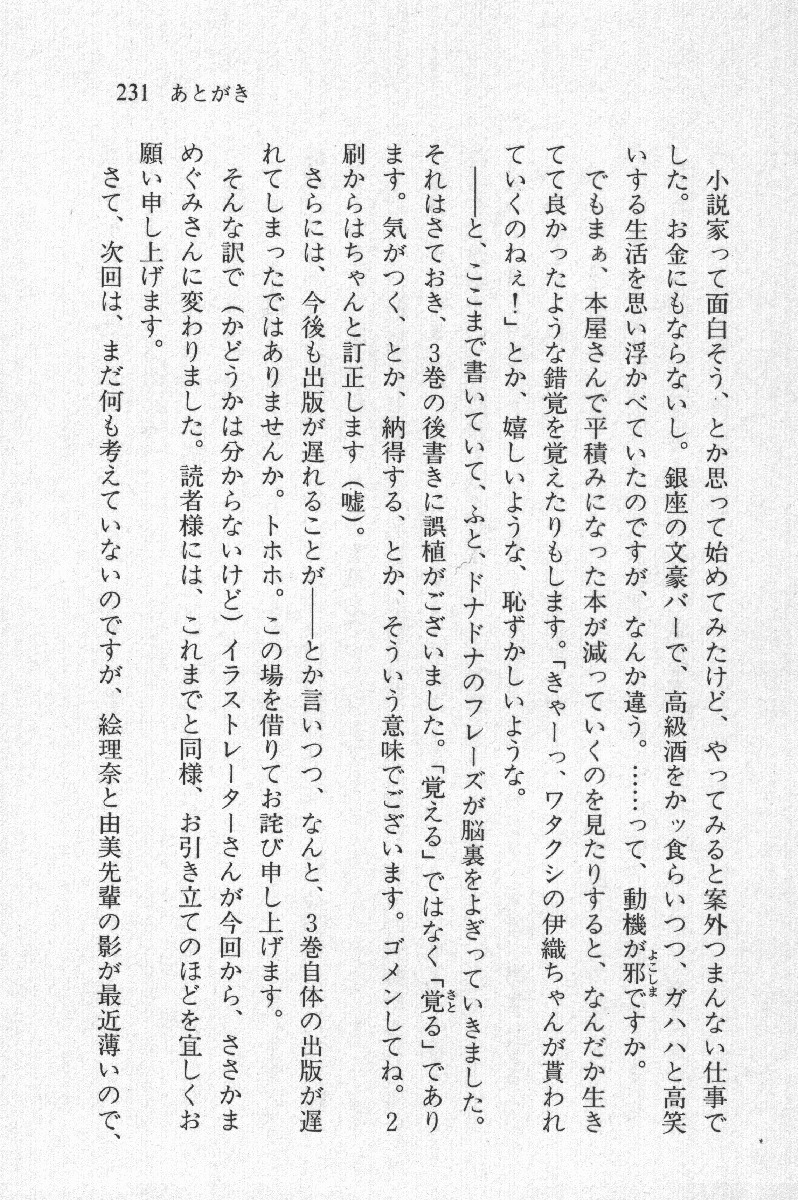 231 あとがき
小説家って面白そう、とか思って始めてみたけど、やってみると案外つまんない仕事で
した。お金にもならないし。銀座の文豪バーで、高級酒をかッ食らいつつ、ガハハと高笑
いする生活を思い浮かべていたのですが、なんか違う。……って、動機が邪よこしまですか。
でもまぁ、本屋さんで平積みになった本が減っていくのを見たりすると、なんだか生き
てて良かったような錯覚を覚えたりもします。「きゃーっ、ワタクシの伊織ちゃんが貰われ
ていくのねぇ！」とか、嬉しいような、恥ずかしいような。
――と、ここまで書いていて、ふと、ドナドナのフレーズが脳裏をよぎっていきました。
それはさておき、3巻の後書きに誤植がございました。「覚える」ではなく「覚さとる」であり
ます。気がつく、とか、納得する、とか、そういう意味でございます。ゴメンしてね。2
刷からはちゃんと訂正します（嘘）。
さらには、今後も出版が遅れることが――とか言いつつ、なんと、3巻自体の出版が遅
れてしまったではありませんか。トホホ。この場を借りてお詫び申し上げます。
そんな訳で（かどうかは分からないけど）イラストレーターさんが今回から、ささかま
めぐみさんに変わりました。読者様には、これまでと同様、お引き立てのほどを宜しくお
願い申し上げます。
さて、次回は、まだ何も考えていないのですが、絵理奈と由美先輩の影が最近薄いので、